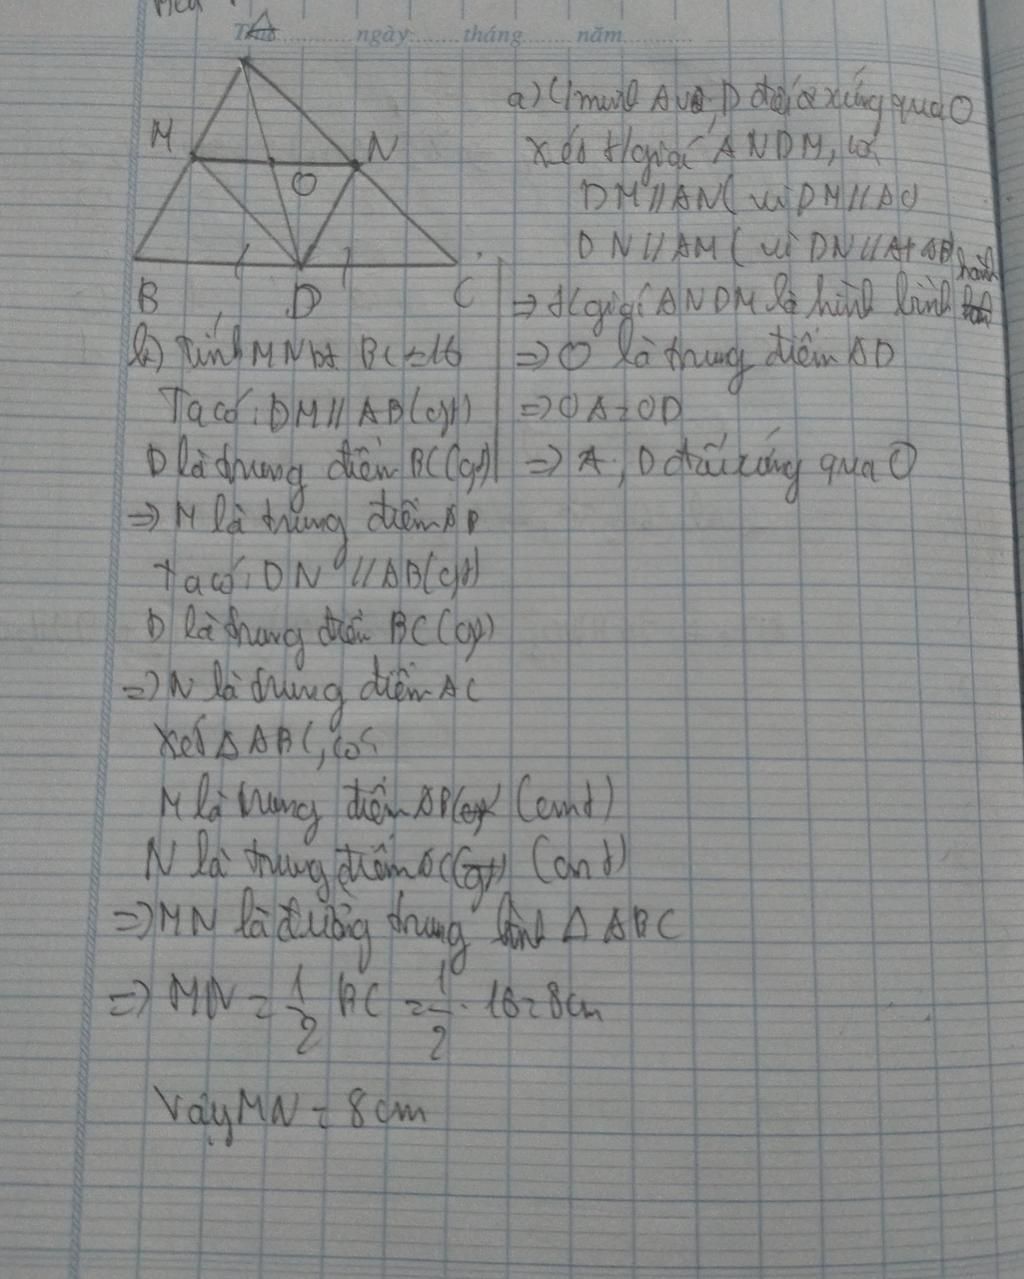 A
ngày tháng năm
M
N
O
B
D
C
a) C/minh A và D đối xứng qua O
Xét t/giác ANDM, có
DM // AN ( vì DM // AC
DN // AM ( vì DN // AB
hành
=> t/giác ANDM là hình bình
=> O là trung điểm AD
=> OA = OD
=> A, D đối xứng qua O
b) Tính MN bt BC = 16
Ta có: DM // AB (gt)
D là trung điểm BC (gt)
=> M là trung điểm AB
Ta có: DN // AB (gt)
D là trung điểm BC (gt)
=> N là trung điểm AC
Xét Δ ABC, có
M là trung điểm AB (gt) (cmt)
N là trung điểm AC (gt) (cmt)
=> MN là đường trung bình Δ ABC
=> MN = 1/2 BC = 1/2 . 16 = 8 cm
Vậy MN = 8 cm